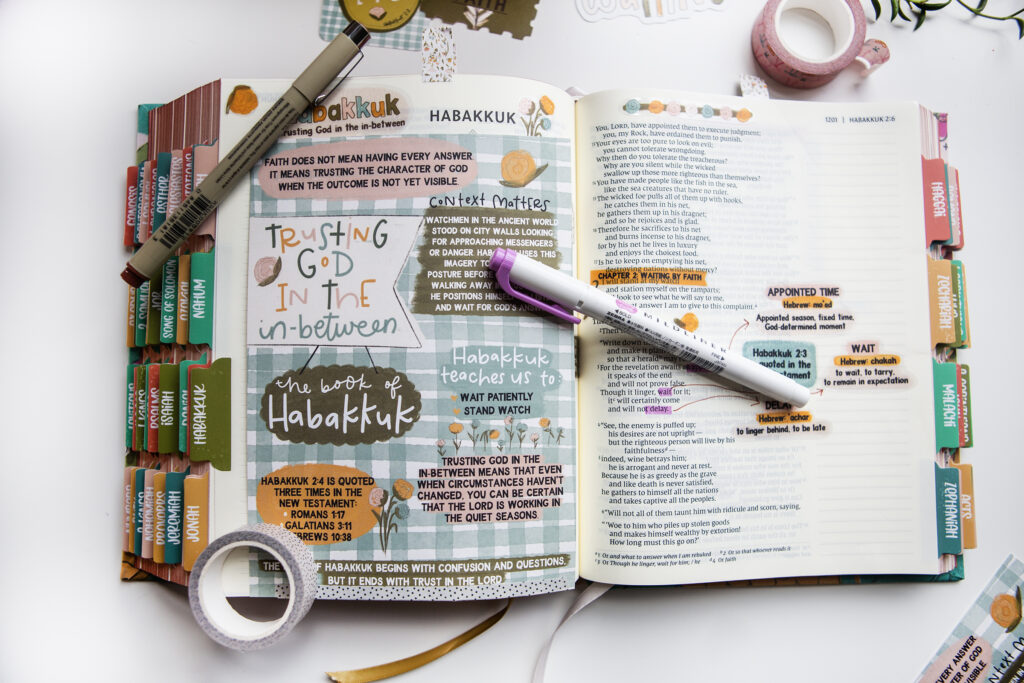 Habakkuk
Trusting God in the in-between
HABAKKUK
FAITH DOES NOT MEAN HAVING EVERY ANSWER
IT MEANS TRUSTING THE CHARACTER OF GOD
WHEN THE OUTCOME IS NOT YET VISIBLE.
TRUSTING
GOD
IN the
in-between
Context Matters
WATCHMEN IN THE ANCIENT WORLD
STOOD ON CITY WALLS LOOKING
FOR APPROACHING MESSENGERS
OR DANGER
IMAGERY TO
POSTURE BEFORE
WALKING AWAY
HE POSITIONS
AND WAIT FOR GOD'S
the book of
Habakkuk
Habakkuk
teaches us to:
WAIT PATIENTLY
STAND WATCH
HABAKKUK 2:4 IS QUOTED
THREE TIMES IN THE
NEW TESTAMENT:
ROMANS 1:17
GALATIANS 3:11
HEBREWS 10:38
TRUSTING GOD IN THE
IN-BETWEEN MEANS THAT EVEN
WHEN CIRCUMSTANCES HAVEN'T
CHANGED, YOU CAN BE CERTAIN
THAT THE LORD IS WORKING IN
THE QUIET SEASONS.
OF HABAKKUK BEGINS WITH CONFUSION AND QUESTIONS.
BUT IT ENDS WITH TRUST IN THE LORD.
1201 | HABAKKUK 2:6
You, LORD, have appointed them to execute judgment;
you, my Rock, have ordained them to punish.
Your eyes are too pure to look on evil;
you cannot tolerate wrongdoing.
Why then do you tolerate the treacherous?
Why are you silent while the wicked
swallow up those more righteous than themselves?
You have made people like the fish in the sea,
like the sea creatures that have no ruler.
The wicked foe pulls all of them up with hooks,
he catches them in his net,
he gathers them up in his dragnet;
and so he rejoices and is glad.
Therefore he sacrifices to his net
and burns incense to his dragnet,
for by his net he lives in luxury
and enjoys the choicest food.
Is he to keep on emptying his net,
destroying nations without mercy?
CHAPTER 2: WAITING BY FAITH
I will stand at my watch
and station myself on the ramparts;
look to see what he will say to me,
answer I am to give to this complaint.
Write down
and make it plain
so that a herald
For the revelation awaits
it speaks of the end
and will not prove false.
Though it linger, wait for it;
it will certainly come
and will not delay.
"See, the enemy is puffed up;
his desires are not upright—
but the righteous person will live by his
faithfulness—
indeed, wine betrays him;
he is arrogant and never at rest.
Because he is as greedy as the grave
and like death is never satisfied,
he gathers to himself all the nations
and takes captive all the peoples.
"Will not all of them taunt him with ridicule and scorn, saying,
"'Woe to him who piles up stolen goods
and makes himself wealthy by extortion!
How long must this go on?'
Or and what to answer when I am rebuked
Or so that whoever reads it
Or Though he linger, wait for him; / he
Or faith
APPOINTED TIME
Hebrew: mo'ed
Appointed season, fixed time,
God-determined moment
Habakkuk 2:3
quoted in the
WAIT
Hebrew: chakah
to wait, to tarry,
to remain in expectation
DELAY
Hebrew: 'achar
to linger behind, to be late
MILDLINER
GENESIS
ESTHER
SONG OF SOLOMON
EZEKIEL
NAHUM
PSALMS
ISAIAH
DANIEL
HABAKKUK
NEHEMIAH
PROVERBS
JEREMIAH
JONAH
HAGGAI
ZECHARIAH
MALACHI
ZEPHANIAH
ACTS
EVERY ANSWER
OF GOD
VISIBLE.